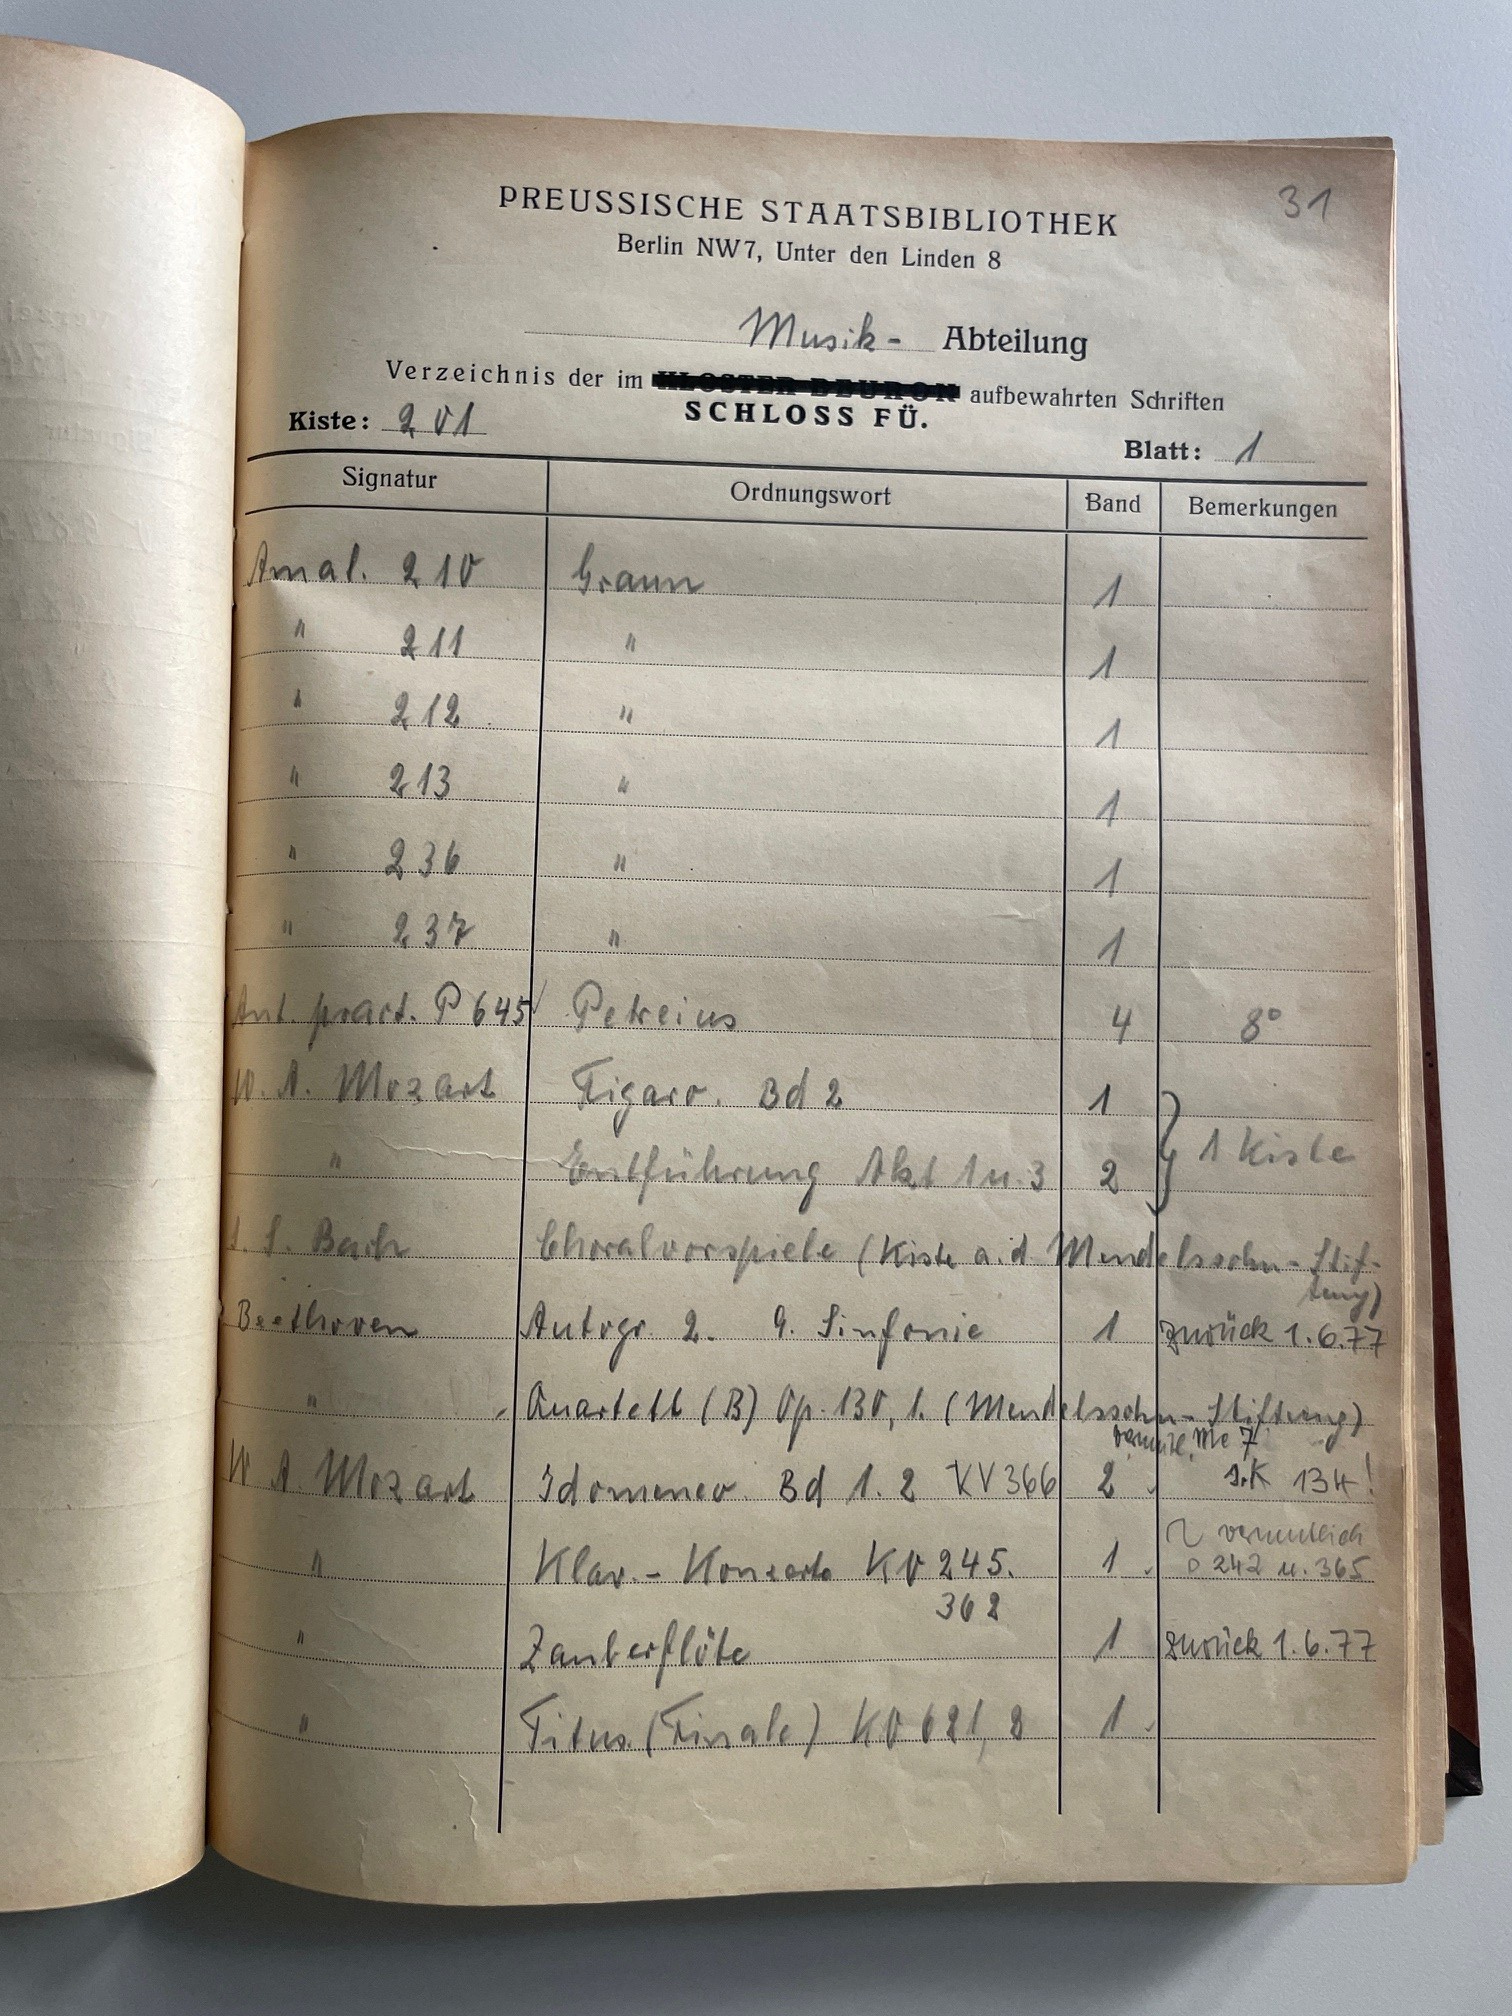 31
PREUSSISCHE STAATSBIBLIOTHEK
Berlin NW7, Unter den Linden 8
Musik- Abteilung
Verzeichnis der im KLOSTER BEURON aufbewahrten Schriften
SCHLOSS FÜ.
Kiste: 201
Blatt: 1
Signatur Ordnungswort Band Bemerkungen
Amal. 210 Graun 1
" 211 " 1
" 212 " 1
" 213 " 1
" 236 " 1
" 237 " 1
Ant. pract. P 645 Petreius 4 8°
W. A. Mozart Figaro. Bd 2 1
" Entführung Akt 1 u. 3 2 } 1 Kiste
J. S. Bach Choralvorspiele (Kiste a. d Mendelssohn-Stif-
tung)
Beethoven Autogr. 2. 9. Sinfonie 1 zurück 1.6.77
" Quartett (B) Op. 130, 1. (Mendelssohn-Stiftung)
W. A. Mozart Idomeneo. Bd 1. 2 KV 366 2 s. K 134!
" Klav.-Konzerte KV 245. 1 vermutlich
362 242 u. 365
" Zauberflöte 1 zurück 1.6.77
" Titus. (Finale) KV 621, 8 1